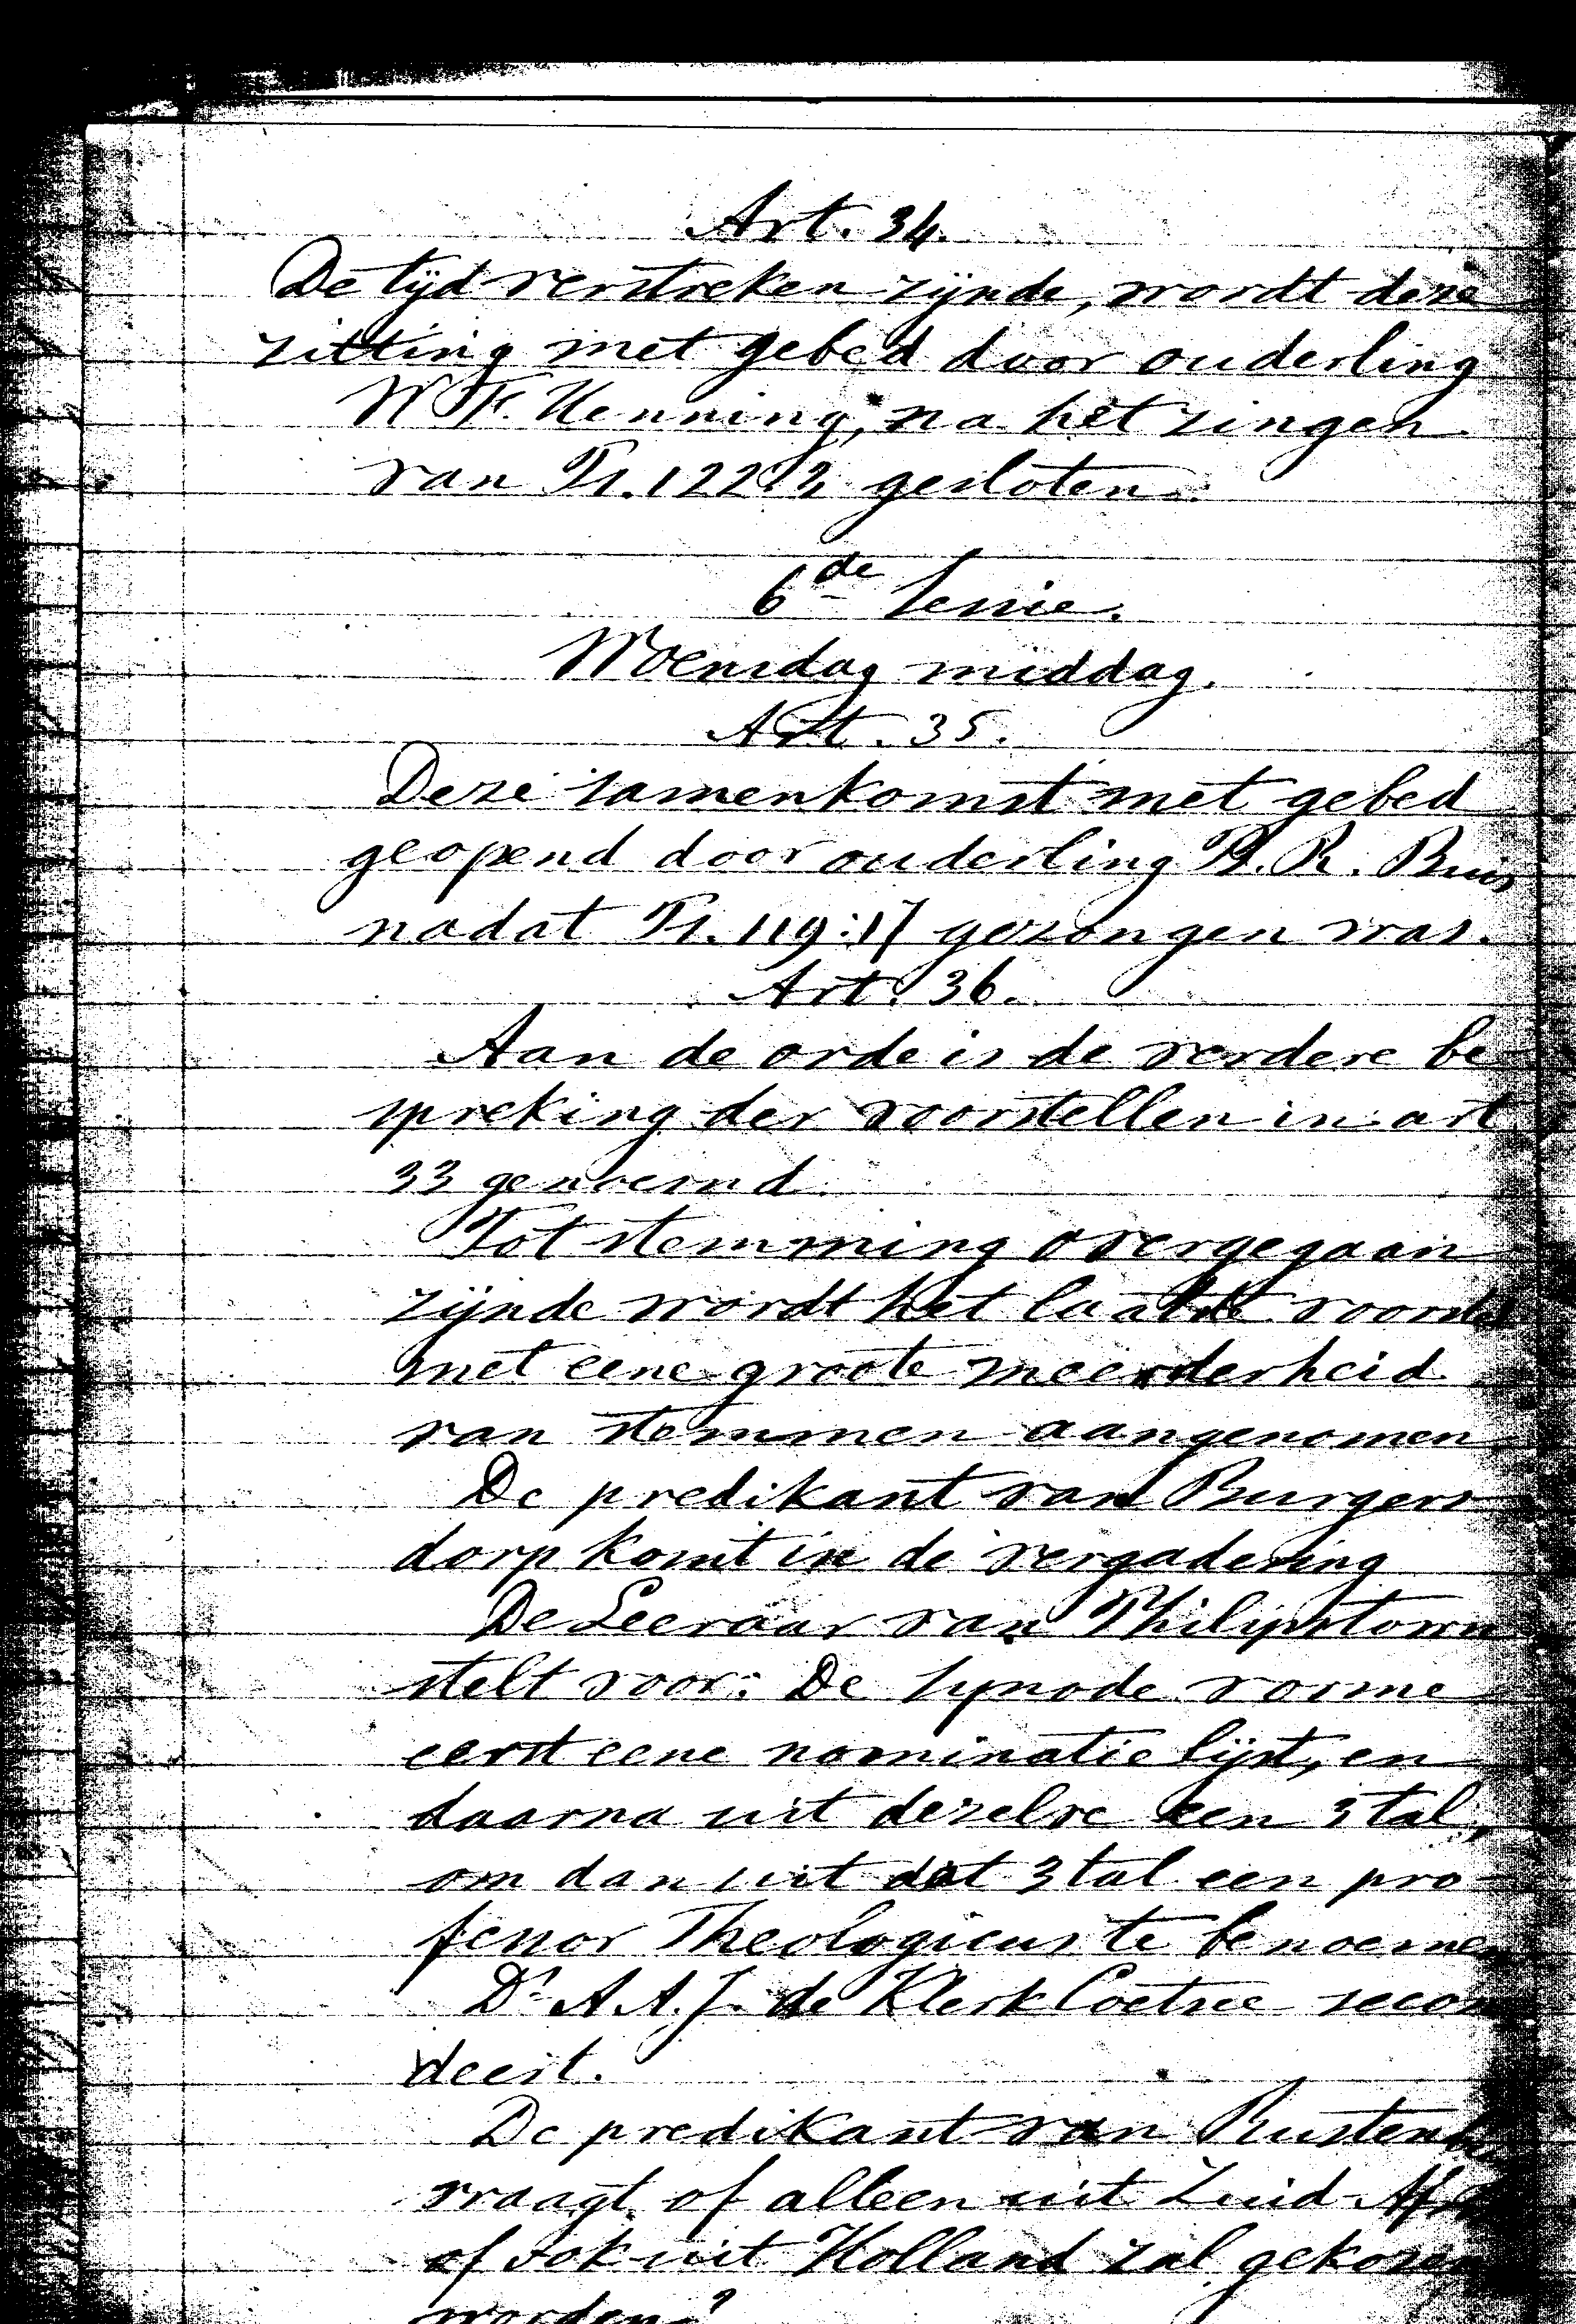 Art. 34.
De tijd verstreken zijnde, wordt deze
zitting met gebed door ouderling
W F. Venning, na het zingen
van Ps. 122:3 gesloten.
6de Sessie.
Woensdag middag.
Art. 35.
Deze samenkomst met gebed
geopend door ouderling P. R. Buis
nadat Ps. 119:17 gezongen was.
Art. 36.
Aan de orde is de verdere be-
spreking der voorstellen in art
33 genoemd.
Tot stemming overgegaan
zijnde wordt het laatste voorstel
met eene groote meerderheid
van stemmen aangenomen
De predikant van Burgers
dorp komt in de vergadering
De Leeraar van Philipstown
stelt voor: De Synode vorme
eerst eene nominatie lijst, en
daarna uit dezelve een 3tal,
om dan uit dat 3tal een pro-
fessor Theologicus te benoemen
Ds. A.A.J. de Klerk Coetsee secon
deert.
De predikant van Rustenburg
vraagt of alleen uit Zuid-Afr
of ook uit Holland zal gekozen
worden?